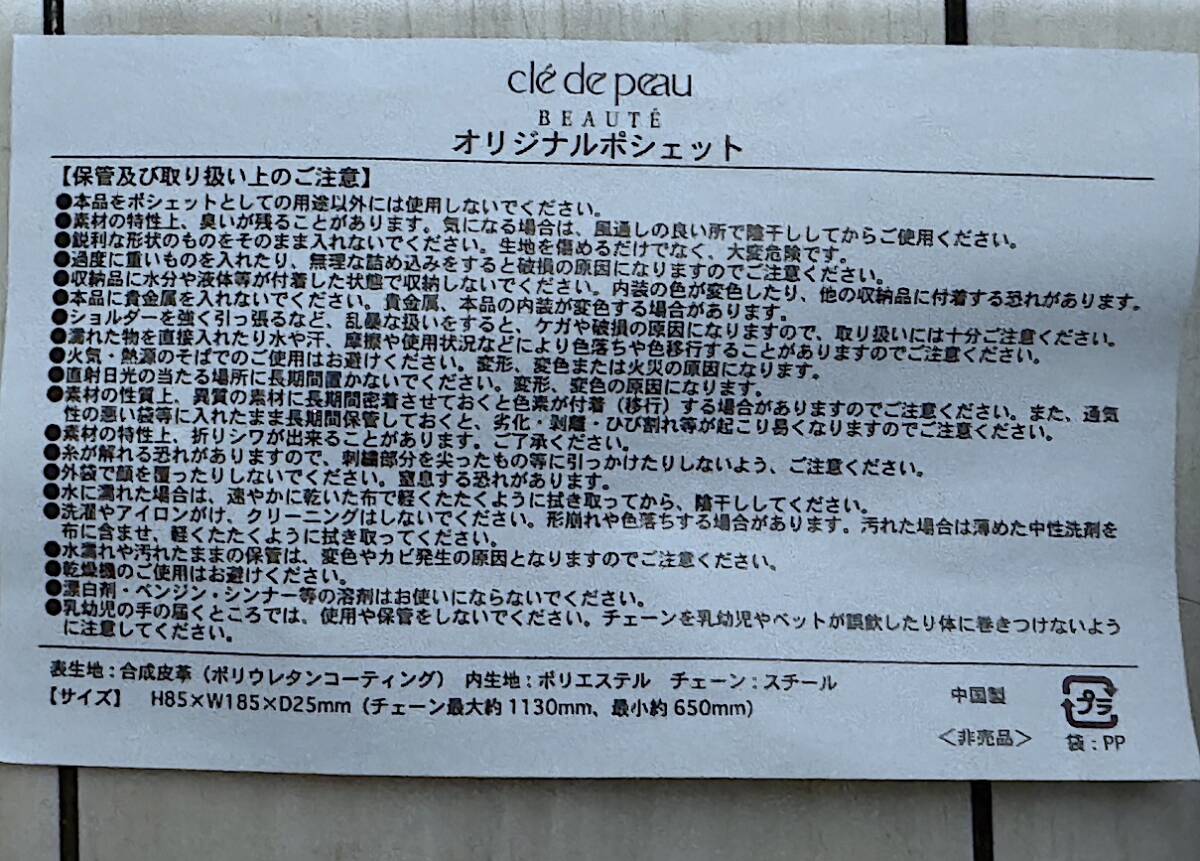 clé de peau
BEAUTÉ
オリジナルポシェット
【保管及び取り扱い上のご注意】
●本品をポシェットとしての用途以外には使用しないでください。
●素材の特性上、臭いが残ることがあります。気になる場合は、風通しの良い所で陰干ししてからご使用ください。
●鋭利な形状のものをそのまま入れないでください。生地を傷めるだけでなく、大変危険です。
●過度に重いものを入れたり、無理な詰め込みをすると破損の原因になりますのでご注意ください。
●収納品に水分や液体等が付着した状態で収納しないでください。内装の色が変色したり、他の収納品に付着する恐れがあります。
●本品に貴金属を入れないでください。貴金属、本品の内装が変色する場合があります。
●ショルダーを強く引っ張るなど、乱暴な扱いをすると、ケガや破損の原因になりますので、取り扱いには十分ご注意ください。
●濡れた物を直接入れたり水や汗、摩擦や使用状況などにより色落ちや色移行することがありますのでご注意ください。
●火気・熱源のそばでのご使用はお避けください。変形、変色または火災の原因になります。
●直射日光の当たる場所に長期間置かないでください。変形、変色の原因になります。
●素材の性質上、異質の素材に長期間密着させておくと色素が付着（移行）する場合がありますのでご注意ください。また、通気
性の悪い袋等に入れたまま長期間保管しておくと、劣化・剥離・ひび割れ等が起こり易くなりますのでご注意ください。
●素材の特性上、折りシワが出来ることがあります。ご了承ください。
●糸が解れる恐れがありますので、刺繍部分を尖ったもの等に引っかけたりしないよう、ご注意ください。
●外袋で顔を覆ったりしないでください。窒息する恐れがあります。
●水に濡れた場合は、速やかに乾いた布で軽くたたくように拭き取ってから、陰干ししてください。
●洗濯やアイロンがけ、クリーニングはしないでください。形崩れや色落ちする場合があります。汚れた場合は薄めた中性洗剤を
布に含ませ、軽くたたくように拭き取ってください。
●水濡れや汚れたままの保管は、変色やカビ発生の原因となりますのでご注意ください。
●乾燥機のご使用はお避けください。
●漂白剤・ベンジン・シンナー等の溶剤はお使いにならないでください。
●乳幼児の手の届くところでは、使用や保管をしないでください。チェーンを乳幼児やペットが誤飲したり体に巻きつけないよう
に注意してください。
表生地：合成皮革（ポリウレタンコーティング） 内生地：ポリエステル チェーン：スチール
【サイズ】 H85×W185×D25mm（チェーン最大約1130mm、最小約650mm）
中国製
プラ
＜非売品＞
袋：PP